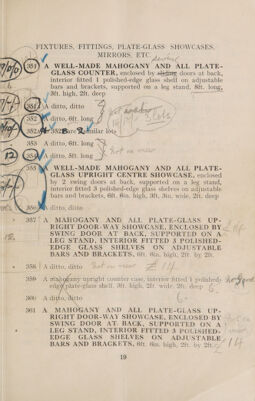 FIXTURES, FITTINGS, PLATE-GLASS SHOWCASES,
MIRRORS, ETC.
351 A WELL-MADE MAHOGANY AND ALL PLATE-
GLASS COUNTER, enclosed by sliding doors at back,
interior fitted 1 polished-edge glass shelf on adjustable
bars and brackets, supported on a leg stand, 8ft. long,
3ft. high, 2ft. deep
A ditto, ditto
A ditto, 6ft. long
lots
353 A ditto, 6ft. long
A ditto, 5ft. long
Not on view
12
A WELL-MADE MAHOGANY AND ALL PLATE-
GLASS UPRIGHT CENTRE SHOWCASE, enclosed
by 2 swing doors at back, supported on a leg stand,
interior fitted 3 polished-edge glass shelves on adjustable
bars and brackets, 6ft. 6in. high, 3ft. 3in. wide, 2ft. deep
A ditto, ditto
357 A MAHOGANY AND ALL PLATE-GLASS UP-
RIGHT DOOR-WAY SHOWCASE, ENCLOSED BY
SWING DOOR AT BACK, SUPPORTED ON A
LEG STAND, INTERIOR FITTED 3 POLISHED-
EDGE GLASS SHELVES ON ADJUSTABLE
BARS AND BRACKETS, 6ft. 6in. high, 2ft. by 2ft.
358 A ditto, ditto Not on view 14
359 A mahogany upright counter case, interior fitted 1 polished-
edge plate-glass shelf, 3ft. high, 2ft. wide, 2ft. deep 6.
360 A ditto, ditto 6.
361 A MAHOGANY AND ALL PLATE-GLASS UP-
RIGHT DOOR-WAY SHOWCASE, ENCLOSED BY
SWING DOOR AT BACK, SUPPORTED ON A
LEG STAND, INTERIOR FITTED 3 POLISHED-
EDGE GLASS SHELVES ON ADJUSTABLE
BARS AND BRACKETS, 6ft. 6in. high, 2ft. by 2ft. 14
19